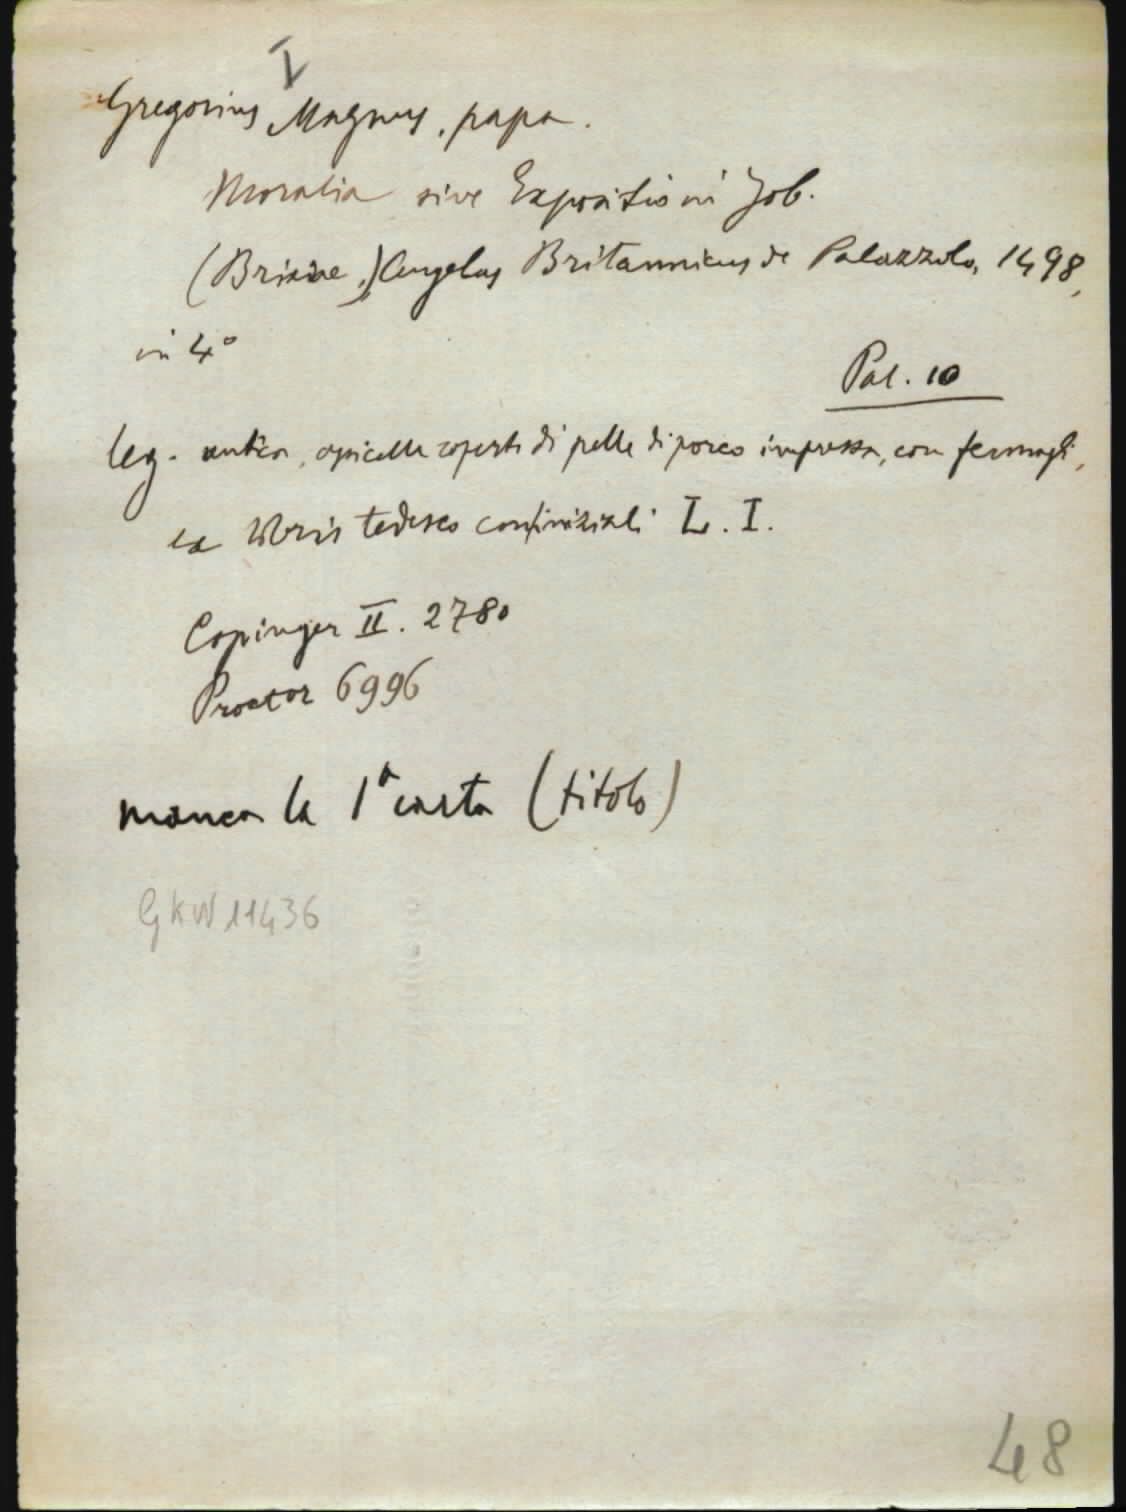 I
Gregorius Magnus, papa.
Moralia sive Expositio in Job.
(Brixiae,) Angelus Britannicus de Palazzolo, 1498,
in 4°
Pal. 10
leg. antica, assicelle coperte di pelle di porco impressa, con fermagli,
ex libris tedesco con iniziali L. I.
Copinger II. 2780
Proctor 6996
manca la 1ª carta (titolo)
GKW 11436
48